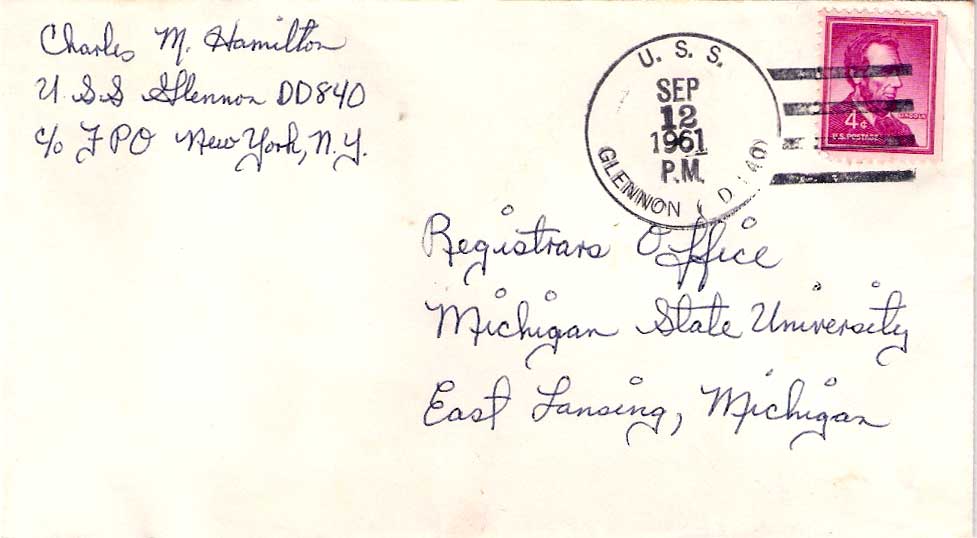 Charles M. Hamilton
U.S.S Glennon DD840
c/o FPO New York, N.Y.
U. S. S.
SEP
12
1961
P.M.
GLENNON
4¢
LINCOLN
U.S. POSTAGE
Registrars Office
Michigan State University
East Lansing, Michigan